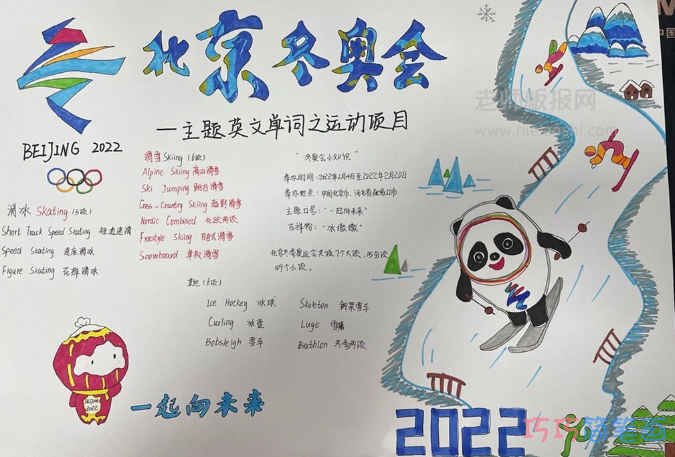 北京冬奥会
一主题英文单词之运动项目
BEIJING 2022
滑冰 Skating (3项)
Short Track Speed Skating 短道速滑
Speed Skating 速度滑冰
Figure Skating 花样滑冰
滑雪 Skiing (6项)
Alpine Skiing 高山滑雪
Ski Jumping 跳台滑雪
Cross-Country Skiing 越野滑雪
Nordic Combined 北欧两项
Freestyle Skiing 自由式滑雪
Snowboard 单板滑雪
"冬奥会小知识"
举办时间:2022年2月4日至2022年2月20日
举办地点:中国北京市、河北省张家口市
主题口号:"一起向未来"
吉祥物:"冰墩墩"
北京冬季奥运会共设7个大项,15个分项
109个小项。
其他 (6项)
Ice Hockey 冰球
Skeleton 钢架雪车
Curling 冰壶
Luge 雪橇
Bobsleigh 雪车
Biathlon 冬季两项
一起向未来
2022
老师板报网
巧巧简笔画